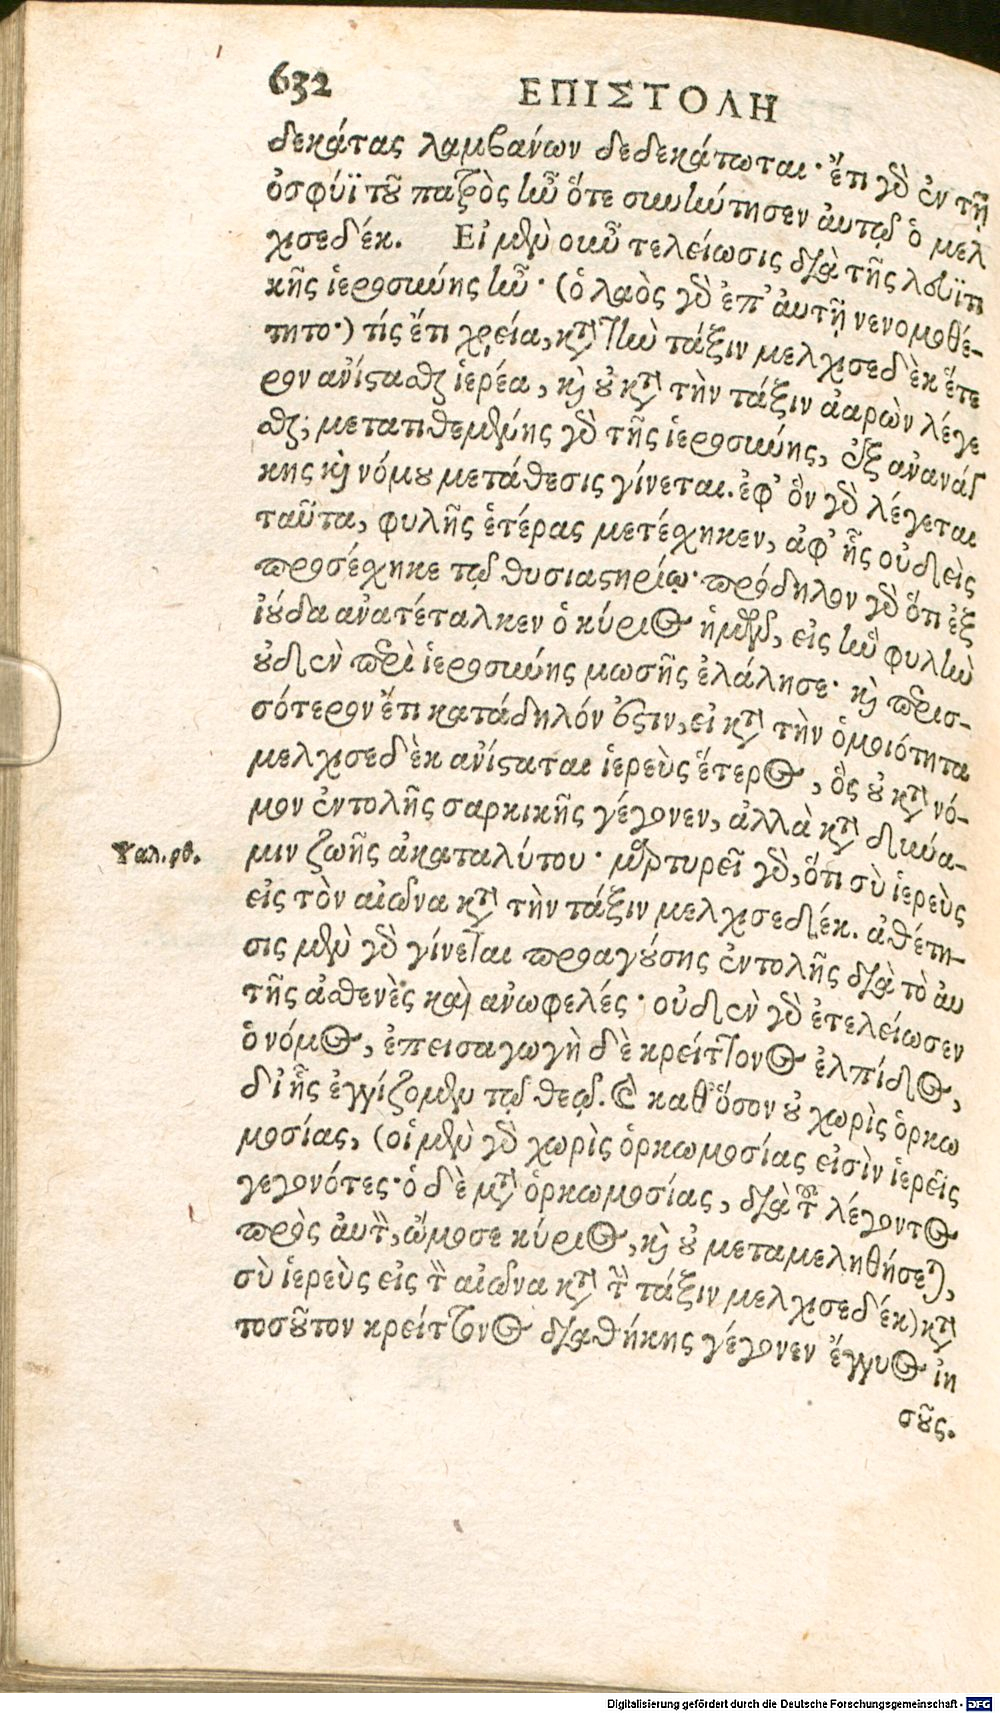 632 ΕΠΙΣΤΟΛΗ
δεκάτας λαμβανων δεδεκάτωται· ἔτι γὸ ἐν τῇ
ὀσφύϊ τοῦ πατρὸς ἦν ὅτε συνήντησεν ἀυτῷ ὁ μελ
χισεδέκ. Εἰ μὲν οὖν τελείωσις διὰ τῆς λευϊτι
κῆς ἱερωσύνης ἦν· (ὁ λαὸς γὸ ἐπ' ἀυτῇ νενομοθέ-
τητο·) τίς ἔτι χρεία, κτ τὴν τάξιν μελχισεδὲκ ἕτε
ρον ἀνίστασθαι ἱερέα, κὶ οὐ κτ τὴν τάξιν ἀαρὼν λέγε
σθαι; μετατιθεμένης γὸ τῆς ἱερωσύνης, ἐξ ἀνάγ
κης κὶ νόμου μετάθεσις γίνεται. ἐφ' ὃν γὸ λέγεται
ταῦτα, φυλῆς ἑτέρας μετέχηκεν, ἀφ' ἧς οὐδεὶς
προσέχηκε τῷ θυσιαστηρίῳ· πρόδηλον γὸ ὅτι ἐξ
ἰούδα ἀνατέταλκεν ὁ κύριος ἡμῶν, εἰς ἣν φυλὴν
οὐδὲν περὶ ἱερωσύνης μωσῆς ἐλάλησε· κὶ περισ-
σότερον ἔτι κατάδηλόν ἐστιν, εἰ κτ τὴν ὁμοιότητα
μελχισεδὲκ ἀνίσταται ἱερεὺς ἕτερος, ὃς οὐ κτ νό-
μον ἐντολῆς σαρκικῆς γέγονεν, ἀλλὰ κτ δύνα-
Ψαλ. ρθ.
μιν ζωῆς ἀκαταλύτου· μαρτυρεῖ γὸ, ὅτι σὺ ἱερεὺς
εἰς τὸν αἰῶνα κτ τὴν τάξιν μελχισεδέκ. ἀθέτη-
σις μὲν γὸ γίνεται προαγούσης ἐντολῆς διὰ τὸ ἀυ
τῆς ἀσθενὲς καὶ ἀνωφελές· οὐδὲν γὸ ἐτελείωσεν
ὁ νόμος, ἐπεισαγωγὴ δὲ κρείττονος ἐλπίδος,
δι' ἧς ἐγγίζομεν τῷ θεῷ. Καὶ καθ' ὅσον οὐ χωρὶς ὁρκω
μοσίας, (οἱ μὲν γὸ χωρὶς ὁρκωμοσίας εἰσὶν ἱερεῖς
γεγονότες· ὁ δὲ μτ ὁρκωμοσίας, διὰ τοῦ λέγοντος
πρὸς ἀυτὸν, ὤμοσε κύριος, κὶ οὐ μεταμεληθήσεται,
σὺ ἱερεὺς εἰς τὸν αἰῶνα κτ τὴν τάξιν μελχισεδέκ) κτ
τοσοῦτον κρείττονος διαθήκης γέγονεν ἔγγυος ἰη
σοῦς.
Digitalisierung gefördert durch die Deutsche Forschungsgemeinschaft - DFG